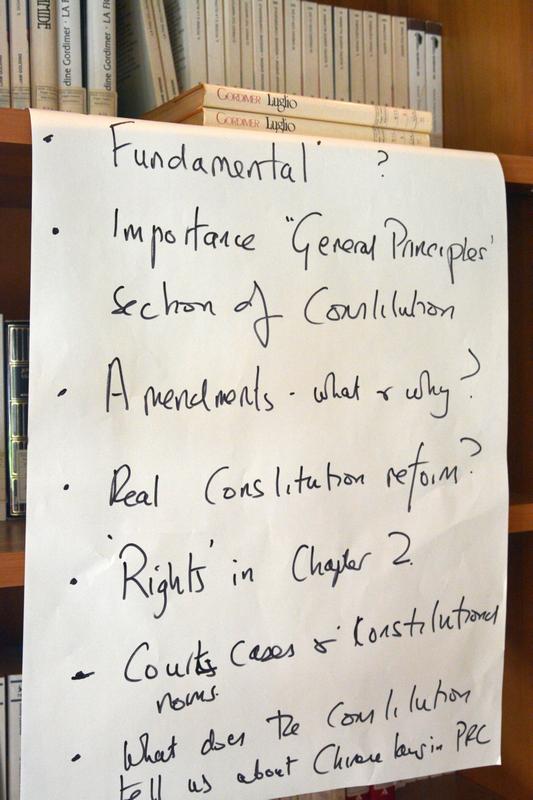 dine Gordimer - LA F
dine Gordimer - LA FR
GORDIMER Luglio
GORDIMER Luglio
• Fundamental' ?
• Importance "General Principles'
section of Constitution
• Amendments - what & why?
• Real Constitution reform?
• 'Rights' in Chapter 2.
• Courts Cases & Constitutional
norms.
• What does the Constitution
tell us about Chinese law in PRC